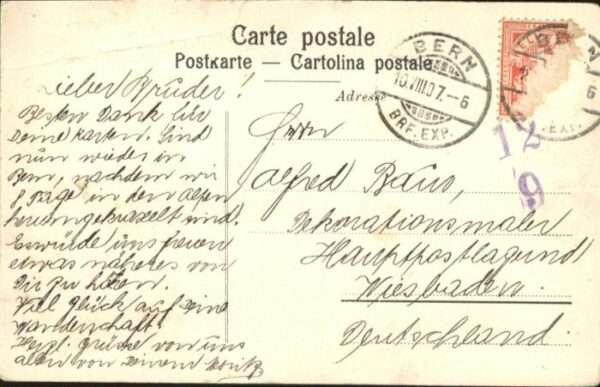 Carte postale
Postkarte — Cartolina postale
Adresse
BERN
10.VIII.07.-6
BRF. EXP.
BERN
6
EXP.
12
9
Lieber Brüder!
Besten Dank für
Deine Karten. Sind
nun wieder in
Bern, nachdem wir
8 Tage in den Alpen
herumgekraxelt sind.
Es würde uns freuen
etwas näheres von
Dir zu hören.
Viel Glück auf Deine
Wanderschaft.
Herzl. Grüsse von uns
allen von Deinem Moritz
Herrn
Alfred Baus,
Dekorationsmaler
Hauptpostlagernd
Wiesbaden.
Deutschland.